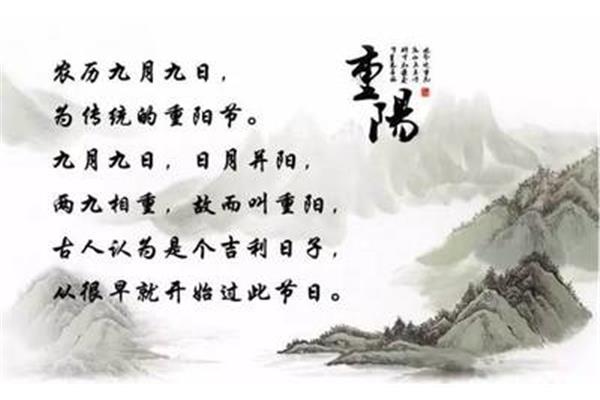 农历九月九日，
为传统的重阳节。
九月九日，日月并阳，
两九相重，故而叫重阳，
古人认为是个吉利日子，
从很早就开始过此节日。
重陽